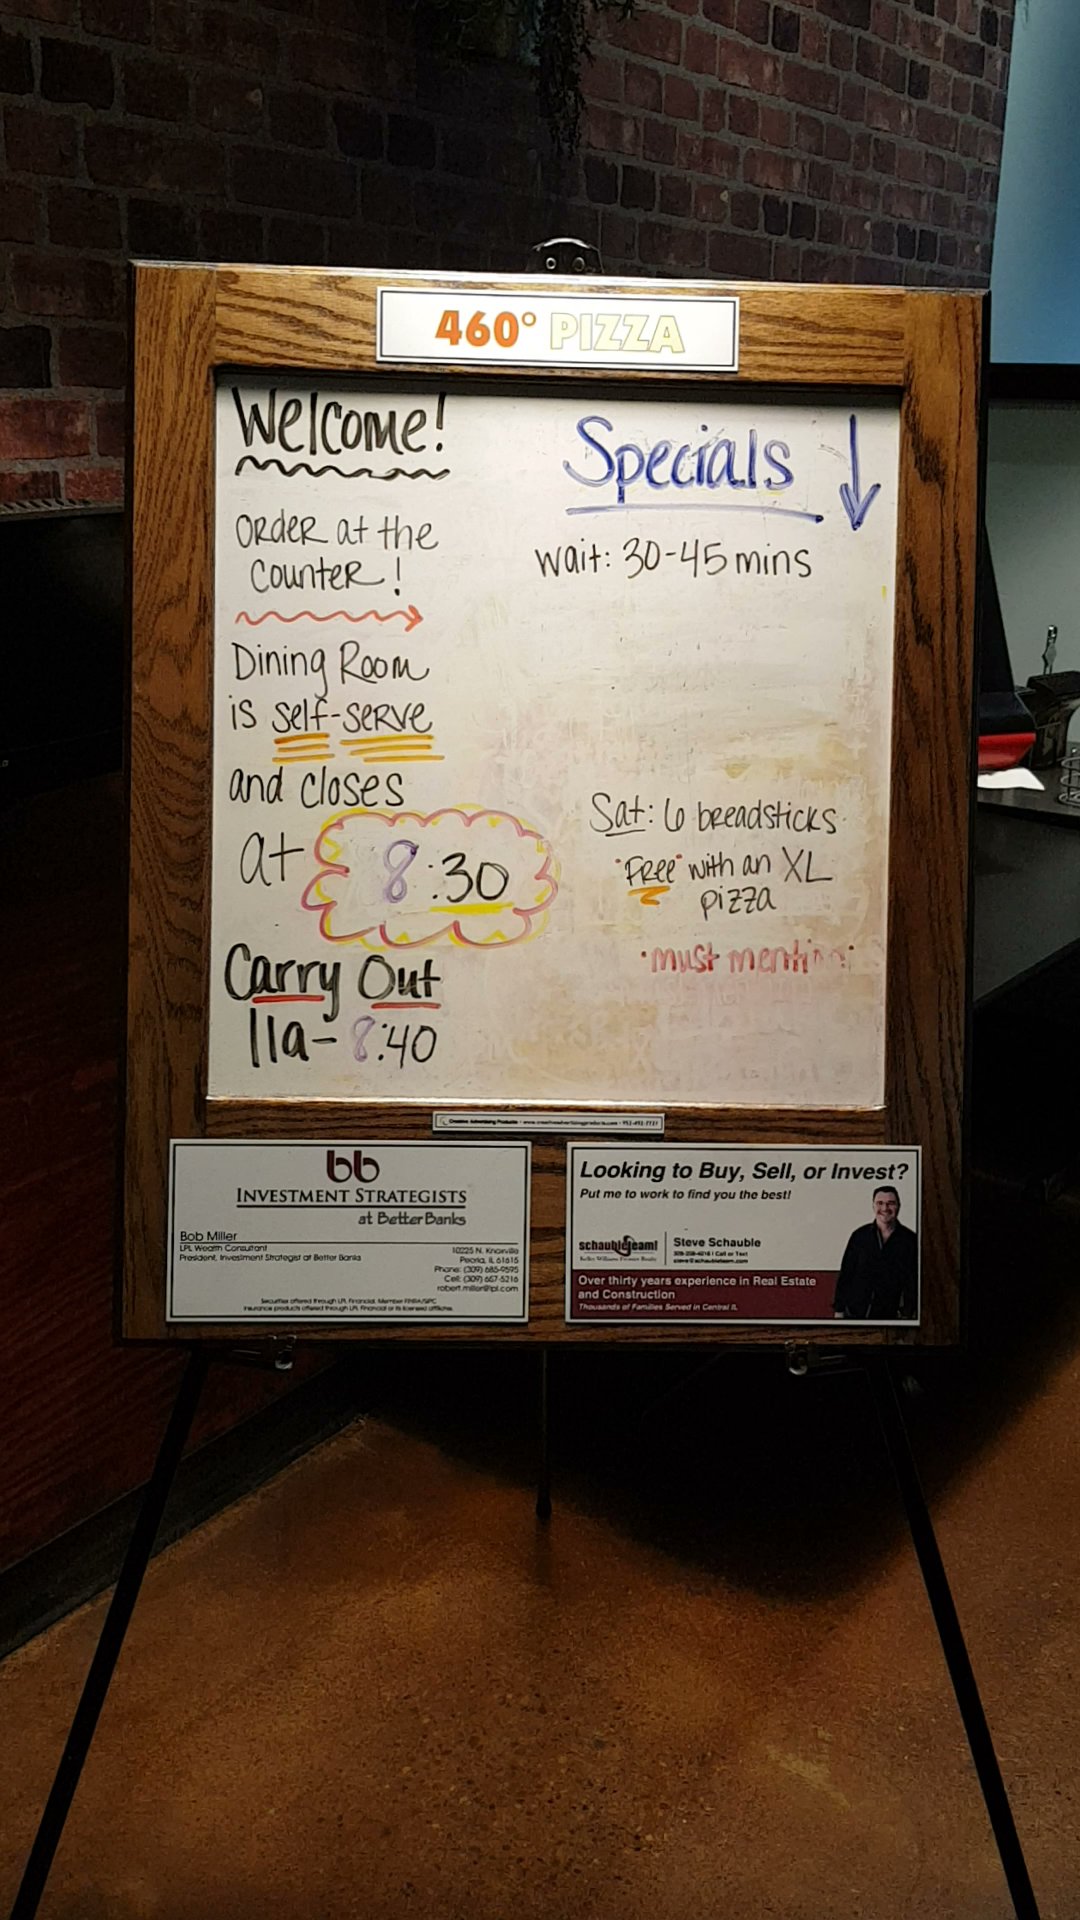 460° PIZZA
Welcome!
Order at the
Counter!
Dining Room
is self-serve
and closes
at 8:30
Carry Out
11a- 8:40
Specials
wait: 30-45 mins
Sat: 6 breadsticks
"Free" with an XL
pizza
*must mention*
Creative Advertising Products - www.creativeadvertisingproducts.com - 952-492-7721
bb
INVESTMENT STRATEGISTS
at Better Banks
Bob Miller
LPL Wealth Consultant
President, Investment Strategist at Better Banks
10225 N. Knoxville
Peoria, IL 61615
Phone: (309) 685-9595
Cell: (309) 657-5216
robert.miller@lpl.com
Securities offered through LPL Financial. Member FINRA/SIPC
Insurance products offered through LPL Financial or its licensed affiliates.
Looking to Buy, Sell, or Invest?
Put me to work to find you the best!
schaubleteam!
Steve Schauble
Call or Text
steve@schaubleteam.com
Over thirty years experience in Real Estate
and Construction
Thousands of Families Served in Central IL